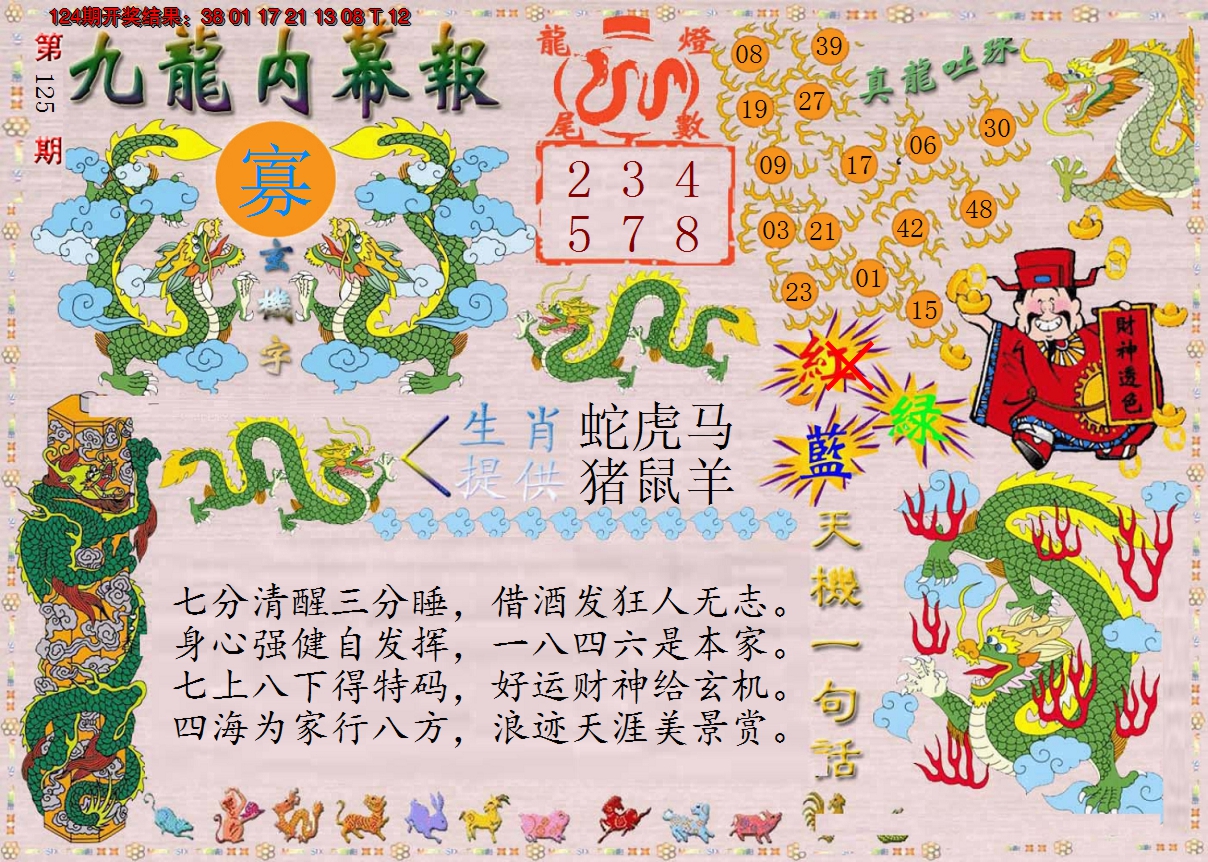 124期开奖结果：38 01 17 21 13 08 T 12
第125期
九龍内幕報
寡
玄機字
龍燈
尾數
2 3 4
5 7 8
真龍吐珠
08 39
19 27
09 17 06 30
03 21 42 48
23 01 15
財神透色
紅
绿
藍
生肖 蛇虎马
提供 猪鼠羊
七分清醒三分睡，借酒发狂人无志。
身心强健自发挥，一八四六是本家。
七上八下得特码，好运财神给玄机。
四海为家行八方，浪迹天涯美景赏。
天機一句話